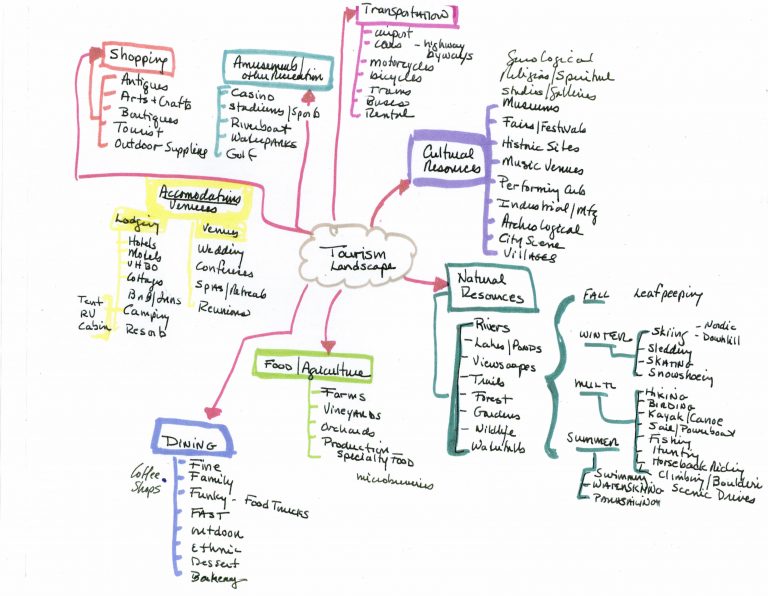 Transportation
airport
cars - highway
byways
motorcycles
bicycles
Trams
Buses
Rental
Shopping
Antiques
Arts + Crafts
Boutiques
Tourist
Outdoor Supplies
Amusements/
other Recreation
Casino
Stadiums/Sports
Riverboat
Waterparks
Golf
Religius/Spiritual
Studios/Galleries
Museums
Cultural
Resources
Fairs/Festivals
Historic Sites
Music Venues
Performing Arts
Industrial/Mfg
Archeological
City Scene
Villages
Accomodations
Venues
Lodging
Hotels
Motels
VHBO
Cottages
BnB/Inns
Tent
RV
Cabin
Camping
Resorts
Venues
Wedding
Conferences
Spas/Retreats
Reunions
Tourism
Landscape
Natural
Resources
Rivers
Lakes/Ponds
Viewscapes
Trails
Forest
Gardens
Wildlife
Waterfalls
FALL
Leafpeeping
WINTER
Skiing - Nordic
- Downhill
Sledding
SKATING
Snowshoeing
MULTI
HIKING
BIRDING
Kayak/Canoe
Sail/Powerboat
Fishing
Hunting
Horseback Riding
Climbing/Boulderi
Scenic Drives
SUMMER
Swimming
WATERSKIING
PARASAILING
FOOD/Agriculture
Farms
Vineyards
Orchards
Production
Specialty FOOD
microbreweries
DINING
Coffee
Shops
Fine
Family
Funky - Food Trucks
FAST
outdoor
Ethnic
Dessert
Bakery